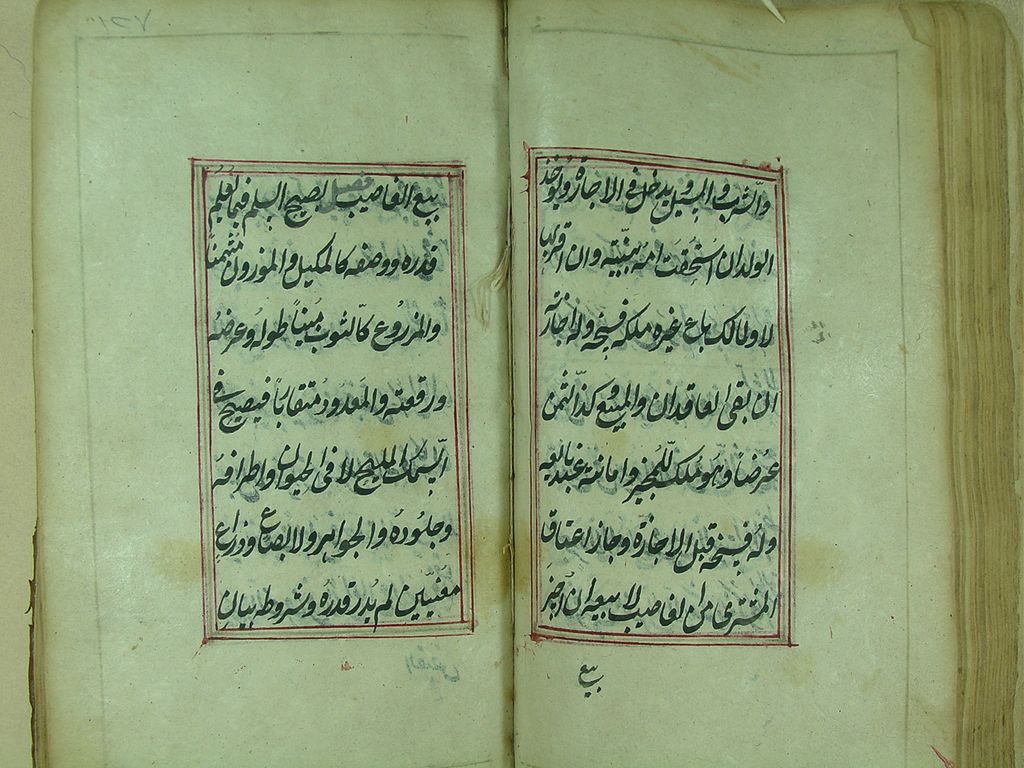 والشرب والمسيل يدخل في الاجارة ويؤخذ
الولد ان استحقت امه ببينة وان اقر بها
لا ولمالك باع غيره ملكه فسخه وله اجازته
ان بقي العاقدان والمبيع كذا الثمن
عرضا وهو ملك للمجيز وامانة عند بائعه
وله فسخه قبل الاجازة وجاز اعتاق
المشتري من الغاصب لا بيعه ان اجيز
بيع
بيع الغاصب فصل يصح السلم فيما يعلم
قدره ووصفه كالمكيل والموزون مثمنا
والمذروع كالثوب مبينا طوله وعرضه
ورقعته والمعدود متقاربا فيصح في
السمك المليح لا في الحيوان واطرافه
وجلوده والجواهر ولا بصاع وذراع
معينين لم يدر قدره وشروطه بيان